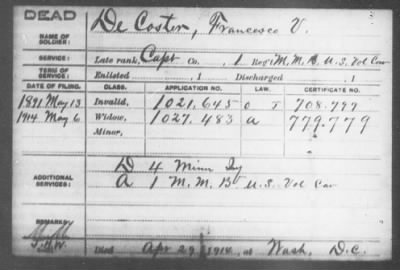 DEAD
NAME OF SOLDIER: De Coster, Francesco V.
SERVICE: Late rank, Capt Co. , 1 Reg't M. M. B. U. S. Vol Cav
TERM OF SERVICE: Enlisted , 1 Discharged , 1
DATE OF FILING. CLASS. APPLICATION NO. LAW. CERTIFICATE NO.
1891 May 13 Invalid, 1021.645 O T 708.797
1914 May 6 Widow, 1027.483 a 779.779
Minor,
ADDITIONAL SERVICES: D 4 Minn Inf
A 1 M. M. B U.S. Vol Cav
REMARKS:
Died Apr 29, 1914, at Wash, D.C.